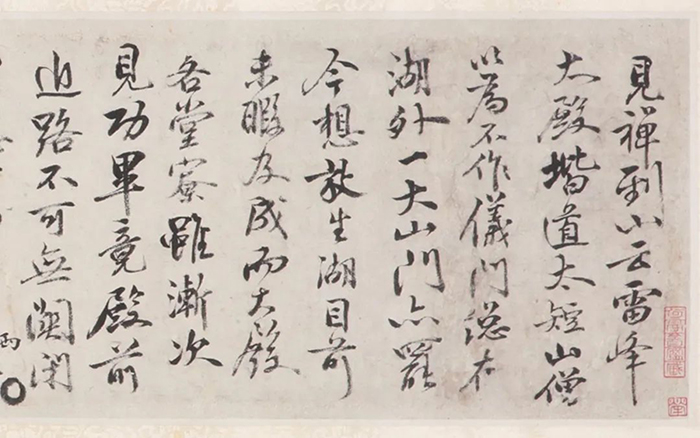 見禪到小云雷峰
大殿堦道太短山僧
以爲不作儀門總在
湖外一大山門亦罷
今想放生湖目前
未暇及成而大殿
各堂寮雖漸次
見功畢竟殿前
迫路不可無闌闲